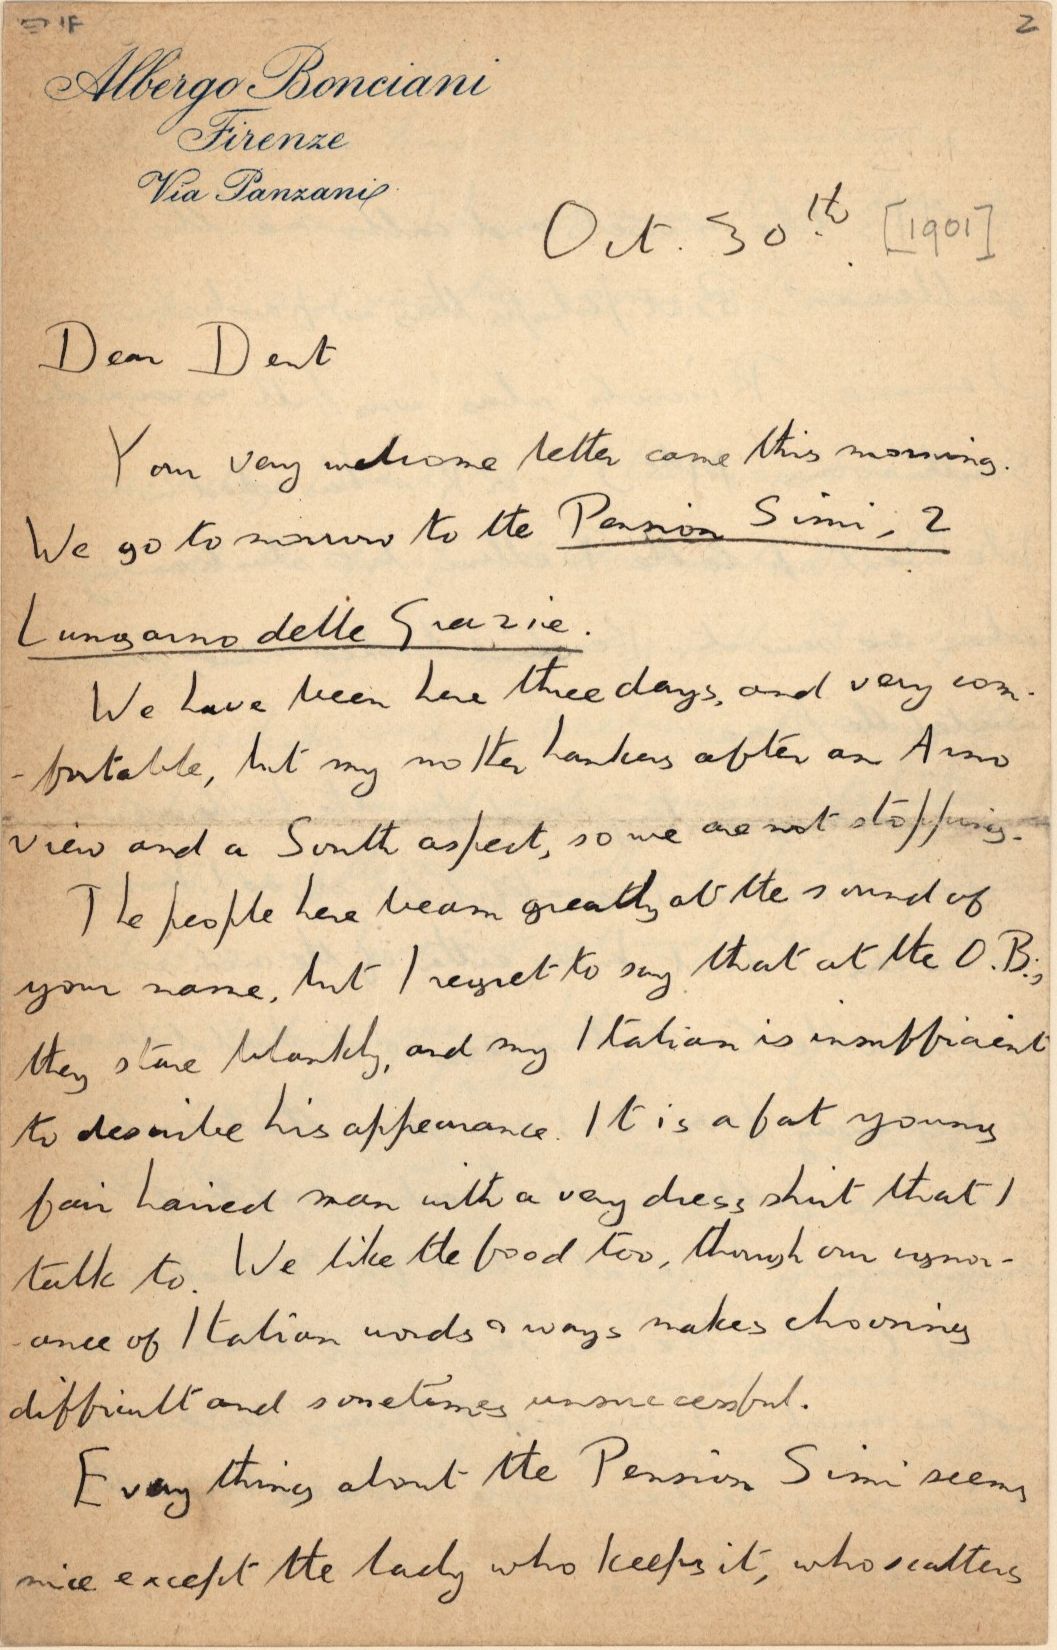 2
Albergo Bonciani
Firenze
Via Panzani
Oct. 30th. [1901]
Dear Dent
Your very welcome letter came this morning.
We go tomorrow to the Pension Simi, 2
Lungarno delle Grazie.
We have been here three days, and very com-
-fortable, but my mother hankers after an Arno
view and a South aspect, so we are not stopping.
The people here beam greatly at the sound of
your name, but I regret to say that at the O.B.'s,
they stare blankly, and my Italian is insufficient
to describe his appearance. It is a fat young
fair haired man with a very dressy shirt that I
talk to. We like the food too, though our ignor-
-ance of Italian words & ways makes choosing
difficult and sometimes unsuccessful.
Every thing about the Pension Simi seems
nice except the lady who keeps it, who scatters